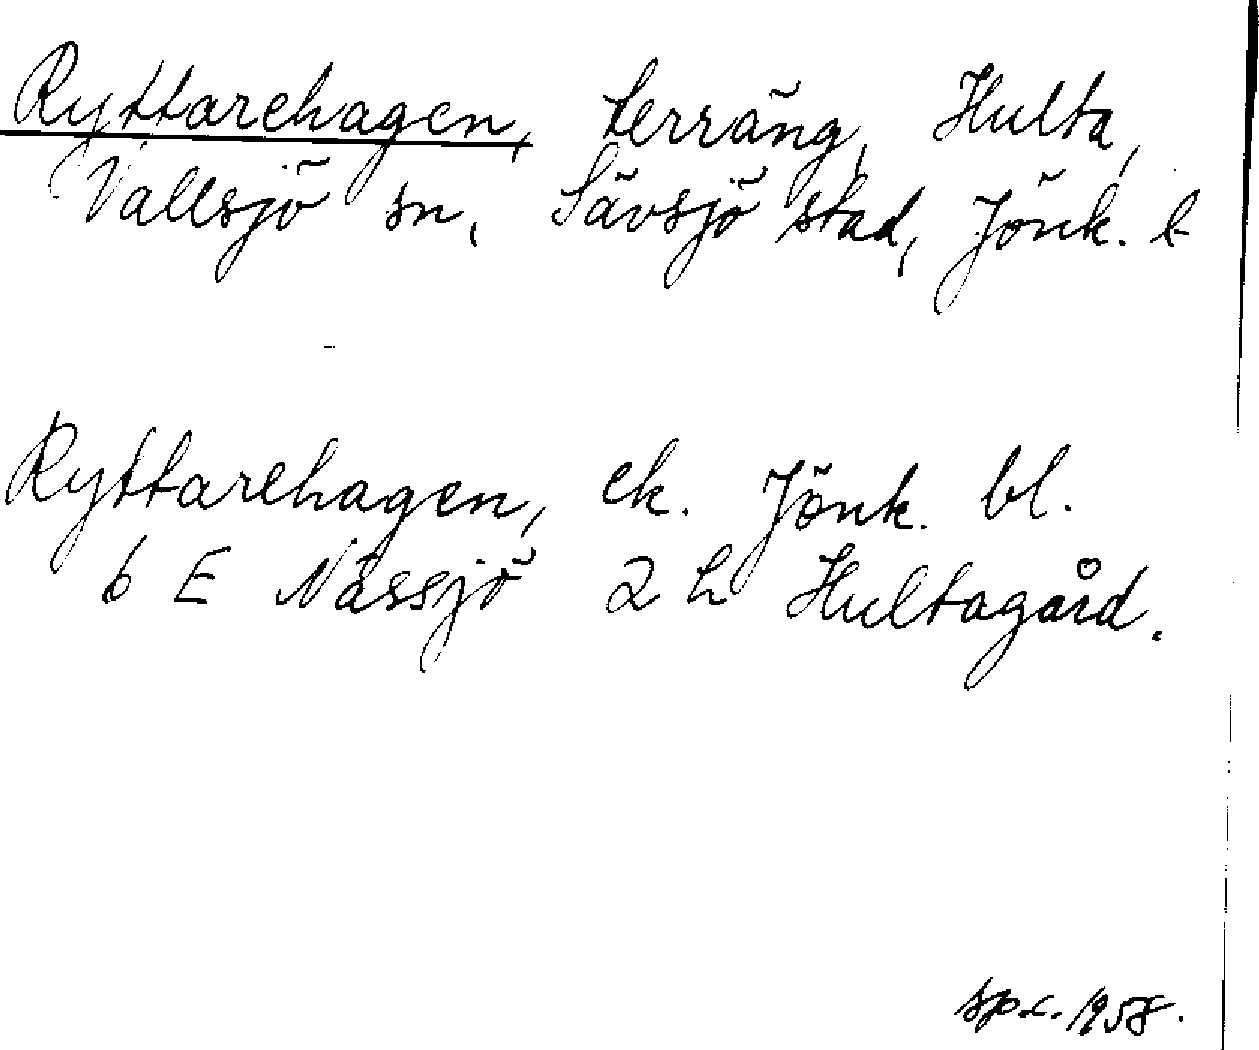 Ryttarehagen, terräng, Hulta,
Vallsjö sn, Sävsjö stad, Jönk. l
Ryttarehagen, ek. Jönk. bl.
6 E Nässjö 2 h Hultagård.
sp.c. 1958.